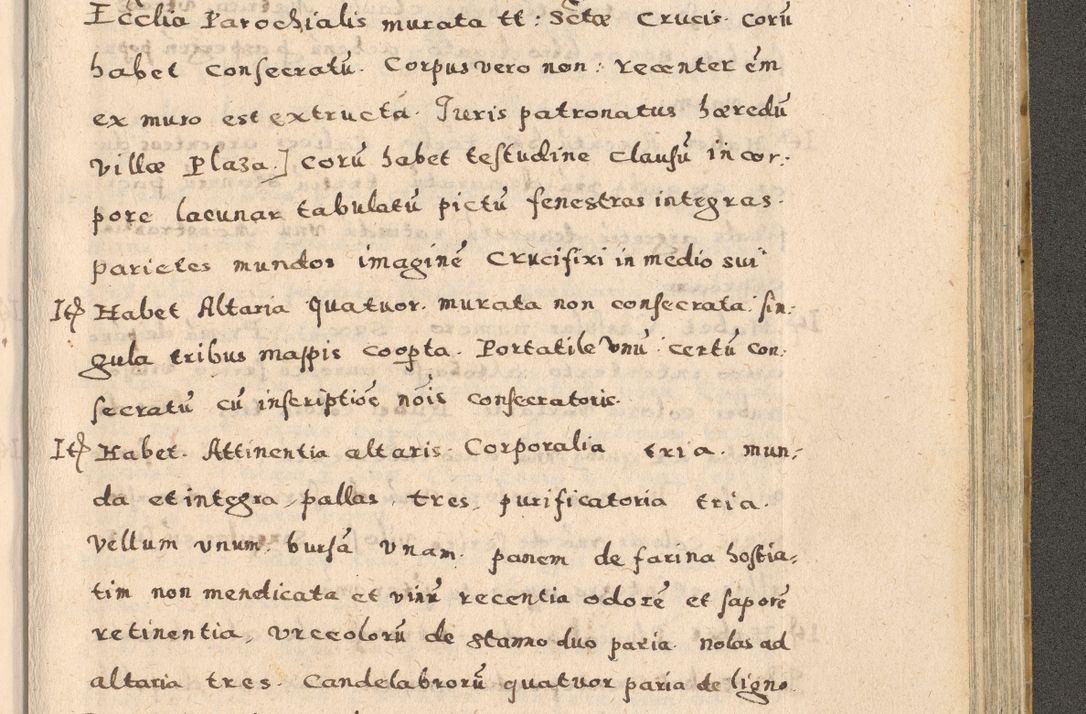 Ecclia Parochialis murata tt: Sctæ Crucis. Corū
habet consecratū. Corpus vero non: recenter em̄
ex muro est extructā. Juris patronatus hæredū
villæ Plaza] Corū habet testudine clausū in cor-
pore lacunar tabulatū pictū fenestras integras.
parietes mundos imaginē Crucifixi in medio sui
Itē Habet Altaria quatuor. murata non consecrata sin-
gula tribus mappis coopta. Portatile vnū certū con-
secratū cū inscriptiōe nōis consecratoris.
Itē Habet. Attinentia altaris. Corporalia tria. mun-
da et integra, pallas tres, purificatoria tria.
Vellum vnum. bursā vnam. panem de farina hostia-
tim non mendicata et vinū recentia odorē et saporē
retinentia, vrceolorū de stanno duo paria. nolas ad
altaria tres. Candelabrorū quatuor paria de ligno